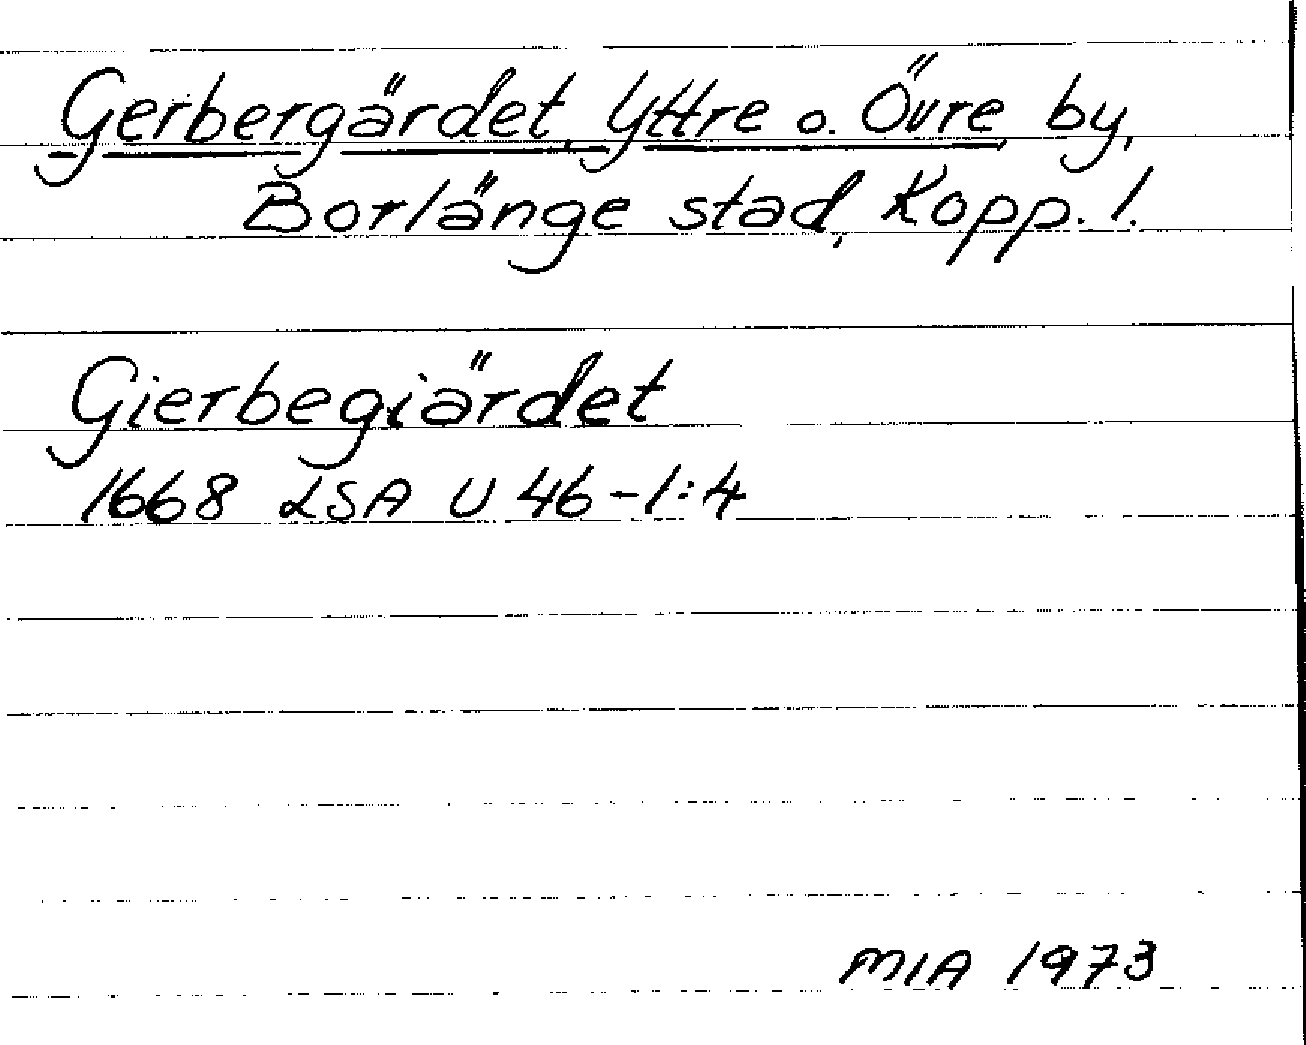 Gerbergärdet, Yttre o. Övre, by,
Borlänge stad, Kopp. l.
Gierbegiärdet
1668 LSA U 46-1:4
MIA 1973